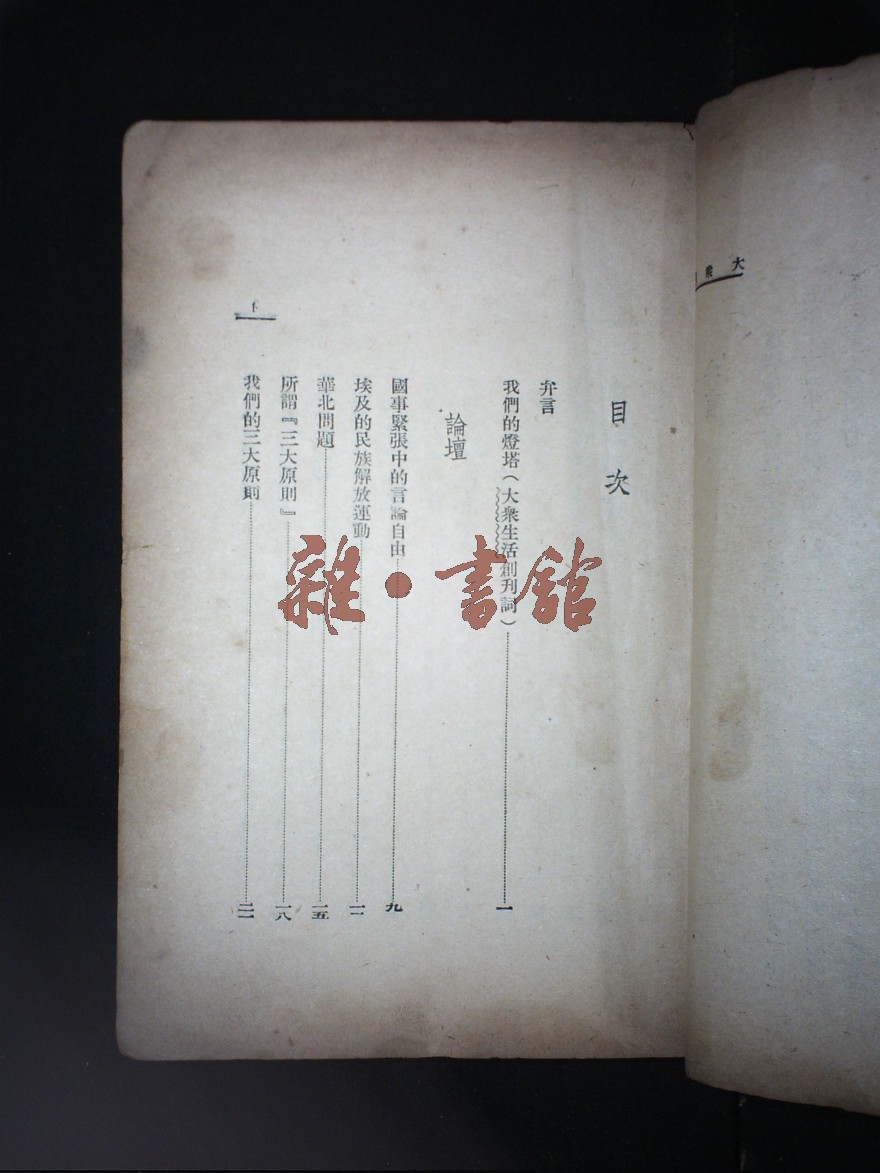 大衆
目次
弁言
我們的燈塔（大衆生活創刊詞）……一
論壇
國事緊張中的言論自由……九
埃及的民族解放運動……
華北問題……一五
所謂『三大原則』……一八
我們的三大原則……二一
雜·書館